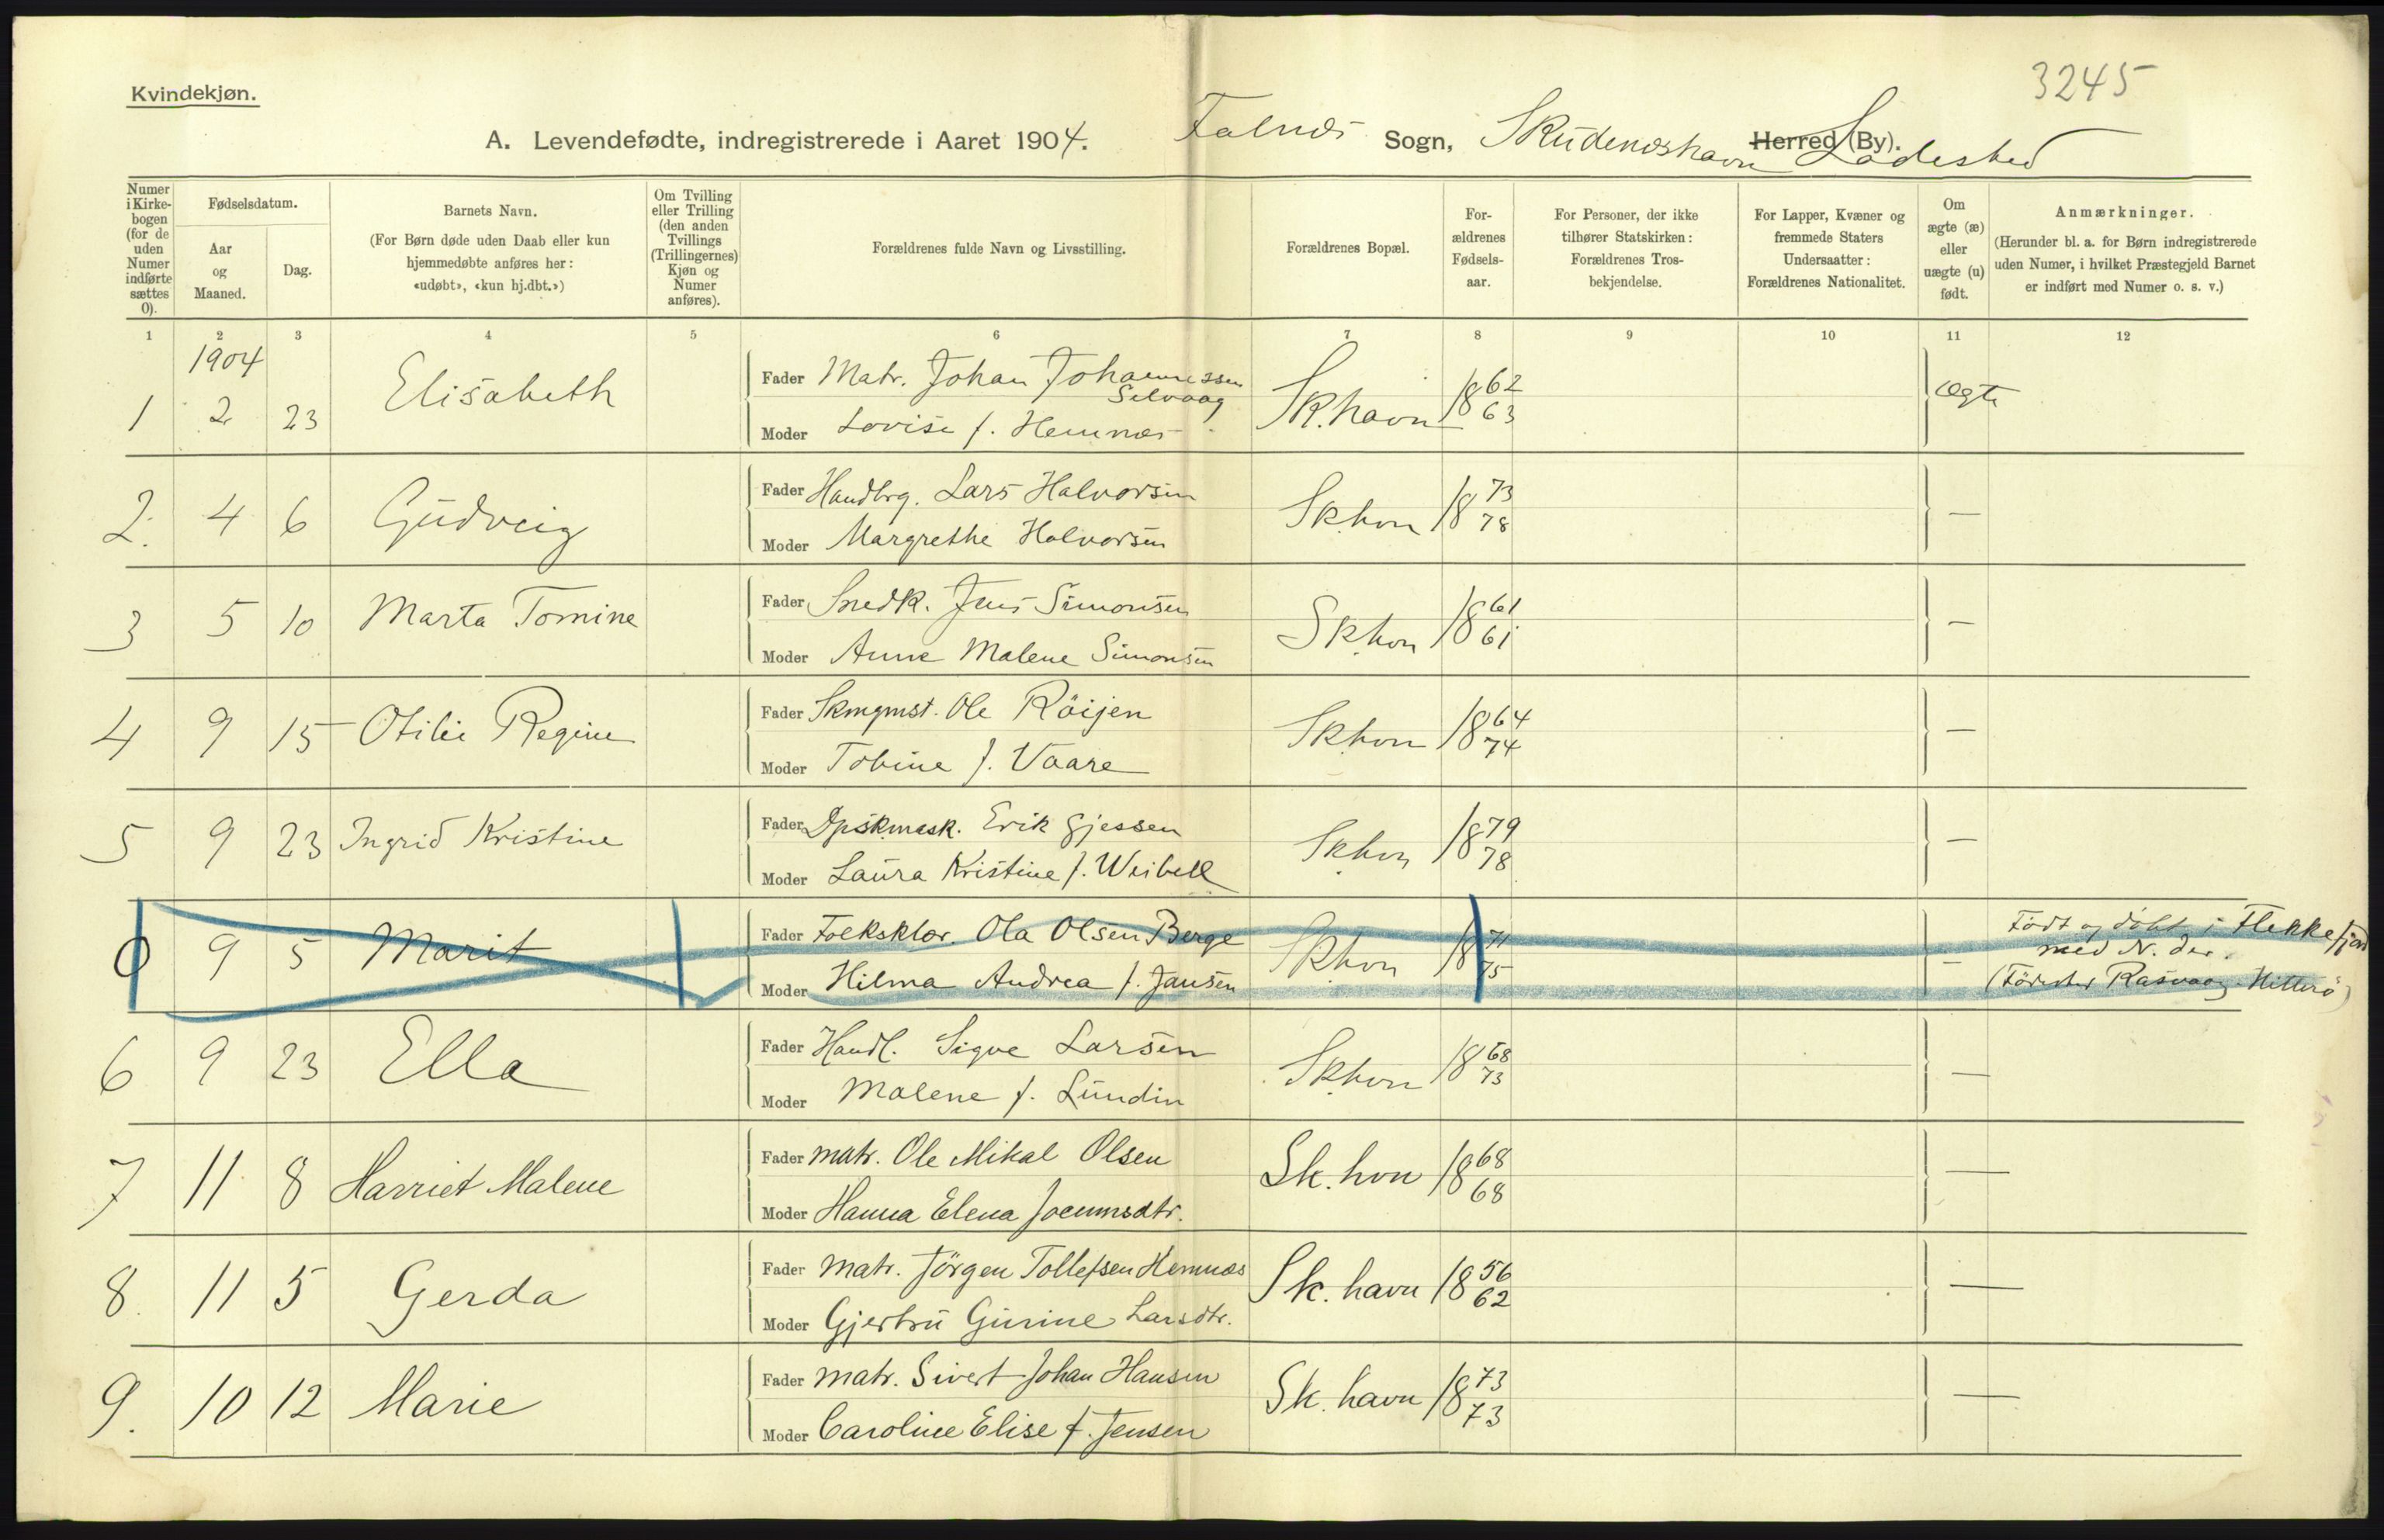 3245
Kvindekjøn.
A. Levendefødte, indregistrerede i Aaret 1904. Falnæs Sogn, Skudeneshavn Herred (By). Ladested
Numer i Kirkebogen (for de uden Numer indførte sættes 0).
Fødselsdatum.
Aar og Maaned.
Dag.
Barnets Navn.
(For Børn døde uden Daab eller kun
hjemmedøbte anføres her:
«udøbt», «kun hj.dbt.»)
Om Tvilling
eller Trilling
(den anden
Tvillings
(Trillingernes)
Kjøn og
Numer
anføres).
Forældrenes fulde Navn og Livsstilling.
Forældrenes Bopæl.
For-
ældrenes
Fødsels-
aar.
For Personer, der ikke
tilhører Statskirken:
Forældrenes Tros-
bekjendelse.
For Lapper, Kvæner og
fremmede Staters
Undersaatter:
Forældrenes Nationalitet.
Om
ægte (æ)
eller
uægte (u)
født.
Anmærkninger.
(Herunder bl. a. for Børn indregistrerede
uden Numer, i hvilket Præstegjeld Barnet
er indført med Numer o. s. v.)
1 2 3 4 5 6 7 8 9 10 11 12
1904
1 2 23 Elisabeth Fader Matr. Johan Johannessen Selvaag Sk.havn 1862 ægte
Moder Lovise f. Hemnæs 63
2. 4 6 Gudveig Fader Handlrg. Lars Halvorsen Skhvn 1873 —
Moder Margrethe Halvorsen 78
3 5 10 Marta Tomine Fader Snedk. Jens Simonsen Skhvn 1861 —
Moder Anne Malene Simonsen 61
4 9 15 Otilie Regine Fader Skmgmst. Ole Röijen Skhvn 1864 —
Moder Tobine f. Vaare 74
5 9 23 Ingrid Kristine Fader Dpskmask. Erik Gjessen Skhvn 1879 —
Moder Laura Kristine f. Weibell 78
0 9 5 Marit Fader Folkskler. Ola Olsen Berge Skhvn 1871 — Födt og döbt i Flekkefjord
med N. der.
Moder Hilma Andrea f. Jansen 75 (Födested Rasvaag Hitterö)
6 9 23 Ella Fader Handl. Sigve Larsen Skhvn 1868 —
Moder Malene f. Lundin 73
7 11 8 Harriet Malene Fader Matr. Ole Mikal Olsen Sk.hvn 1868 —
Moder Hanna Elena Joemmsdtr. 68
8. 11 5 Gerda Fader Matr. Jörgen Tollefsen Hemnæs Sk.havn 1856 —
Moder Gjertru Gurine Larsdtr. 62
9. 10 12 Marie Fader Matr. Sivert Johan Hansen Sk.havn 1873 —
Moder Caroline Elise f. Jensen 73